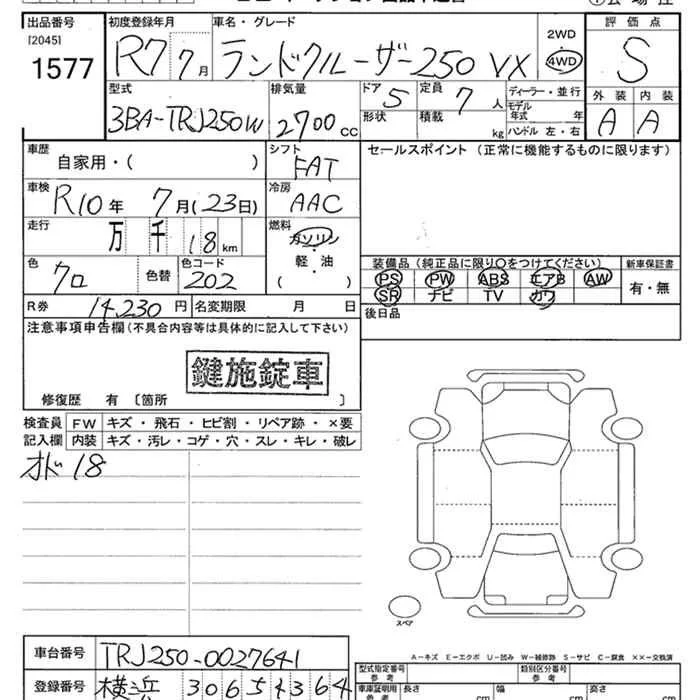 出品番号 初度登録年月 車名・グレード 2WD 評価点
[2045] 1577 R7 7月 ランドクルーザー250 VX 4WD S
型式 排気量 ドア 5 定員 7 人 ディーラー・並行 外装 内装
3BA-TRJ250W 2700 CC 形状 積載 kg モデル年式 年 ハンドル 左・右 A A
車歴 自家用・( ) シフト FAT セールスポイント (正常に機能するものに限ります)
車検 R10年 7月(23日) 冷房 AAC
走行 万 千 18 km 燃料 ガソリン・軽・油 ( )
色 クロ 色替 色コード 202
装備品 (純正品に限り○をつけてください) 新車保証書
PS PW ABS エアB AW 有・無
SR ナビ TV カワ
R券 14,230 円 名変期限 月 日 後日品
注意事項申告欄(不具合内容等は具体的に記入して下さい)
鍵施錠車
修復歴 有 〔箇所 〕
検査員 FW キズ・飛石・ヒビ割・リペア跡・×要
記入欄 内装 キズ・汚レ・コゲ・穴・スレ・キレ・破レ
オド18
スペア
A-キズ E-エクボ U-凹み W-補修跡 S-サビ C-腐食 ××-交換済
車台番号 TRJ250-0027641
型式指定番号 参考 類別区分番号 参考
登録番号 横浜 306 5 4364
車庫証明用 参考 長さ cm 幅 cm 高さ cm